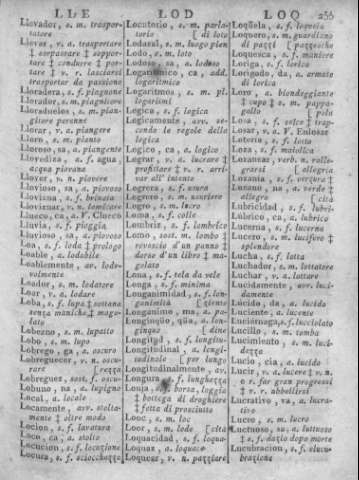 LLE LOD LOQ 255
Llevador, s. m. trasportatore
Llevar, v. a. trasportare
‡ sorpassare ‡ sopportare
‡ condurre ‡ portare
‡ v. r. lasciarsi
trasportar da passione
Lloradera, s. f. piagnone
Llorador, s. m. piagnitore
Lloraduelos, s. m. piangitore
perenne
Llorar, v. a. piangere
Lloro, s. m. pianto
Lloroso, sa, a. piangente
Llovediza, a. f. agua,
acqua piovana
Llover, v. n. piovere
Llovioso, sa, a. piovoso
Llovisna, s. f. brinata
Lloviznar, v. n. lamicare
Llueco, ca, a. V. Clueco
Lluvia, s. f. pioggia
Lluvioso, sa, a. piovoso
Loa, s. f. loda ‡ prologo
Loable, a. lodabile
Loablemente, av. lodevolmente
Loador, s. m. lodatore
Loar, v. a. lodare
Loba, s. f. lupa ‡ sottana
senza maniche ‡
Lobezno, s. m. lupatto
Lobo, s. m. lupo
Lobrego, ga, a. oscuro
Lobreguecer, v. n. oscurare
Lobreguez, sost. f.
Lobuno, na, a. lupigno
Local, a. locale
Locamente, av. stoltamente
‡ oltre modo
Locion, s. f. lavatura
Loco, ca, a. stolto
Locura, s. f. sciocchezza
Locutorio, s. m. parlatorio
[ di loto
Lodazal, s. m. luogo pien
Lodo, s. m. loto
Lodoso, sa, a. lodoso
Logaritmico, ca, add.
logaritmico
Logaritmos, s. m. pl.
logaritmi
Logica, s. f. logica
Logicamente, av. secondo
le regole della
logica
Logico, ca, a. logico
Lograr, v. a. lucrare ‡
profittare ‡ v. r. arrivar
all' intento
Logrera, s. f. usura
Logrero, s. m. usuriere
Logro, s. m. lucro
Loma, s. f. colle
Lombriz, s. f. lombrico
Lomo, sost. m. lombo ‡
rovescio d'un panno ‡
dorso d'un libro ‡
Lona, s. f. tela da vele
Longa, s. f. minima
Longanimidad, s. f. longanimità
Longanimo, ma, a.
Longinqüo, qüa, a. longinquo
Longitud, s. f. longitu-
Longitudinal, a. longitudinale
[ per lungo
Longitudinalmente, av.
Longura, s. f. lunghezza
Lonja, s. f. borsa, loggia
‡ bottega di droghiere
‡ fetta di prosciutto
Looc, s. m. loc
Loor, s. m. lode
Loquacidad, s. f. loqua-
Loquaz, a. loquace
Loquear, v. n. pazziare
Loqüela, s. f. loquela
Loquero, s. m. guardiano
di pazzi [ pazzesche
Loquesca, s. f. maniere
Loriga, s. f. lorica
Lorigado, da, a. armato
di lorica
Loro, a. biondeggiante
‡ cupo ‡ s. m. pappagallo
Losa, s. f.
Losar, v. a. V. Enlosar
Loteria, s. f. lotto
Loza, s. f. maiolica
Lozanear, verb. n. rallegrarsi
[ allegria
Lozania, s. f. verdura ‡
Lozano, na, a. verde ‡
allegro
Lubricidad, s. f. lubricità
Lubrico, ca, a. lubrico
Lucerna, s. f. lucerna
Lucero, s. m. lucifero ‡
splendore
Lucha, s. f. lotta
Luchador, s. m. lottatore
Luchar, v. a. lottare
Lucidamente, avv. lucidamente
Lucido, da, a. lucido
Luciente, a. lucente
Luciérnaga, s. f. lucciolato
Lucillo, s. m. tomba
Lucimiento, s. m. lucidezza
Lucio, cia, a. lucido
Lucir, v. a. lucere ‡ v. n.
e r. far gran progressi
‡ v. r. abbellirsi
Lucrativo, va, a. lucrativo
Lucro, s. m. lucro
Luctuoso, sa, a. luttuoso
‡ s. f. dazio dopo morte
Lucubracion, s. f. elucubrazione